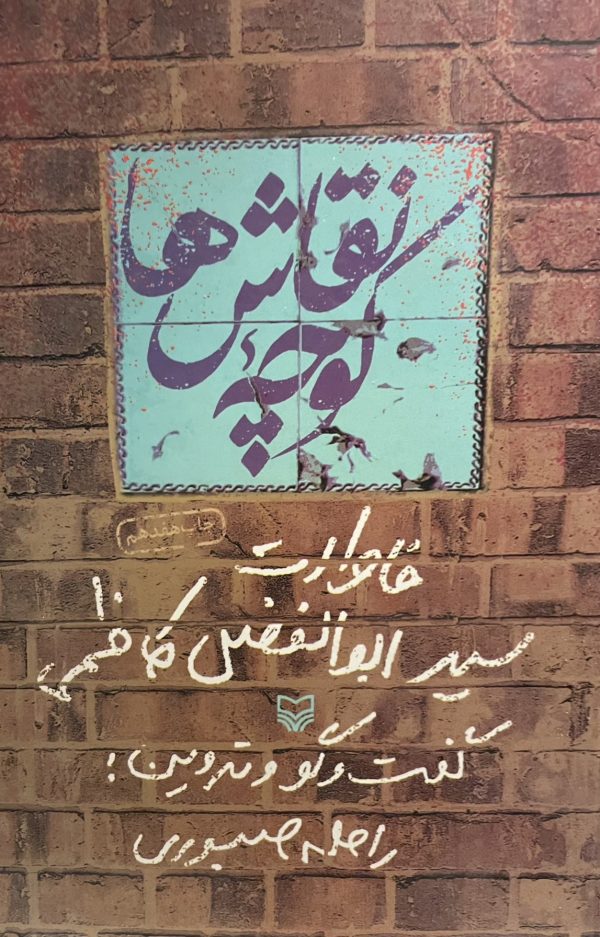 کوچهٔ نقاش‌ها
چاپ هفدهم
خاطرات
سید ابوالفضل کاظمی
گفت و گو و تدوین:
راحله صبوری